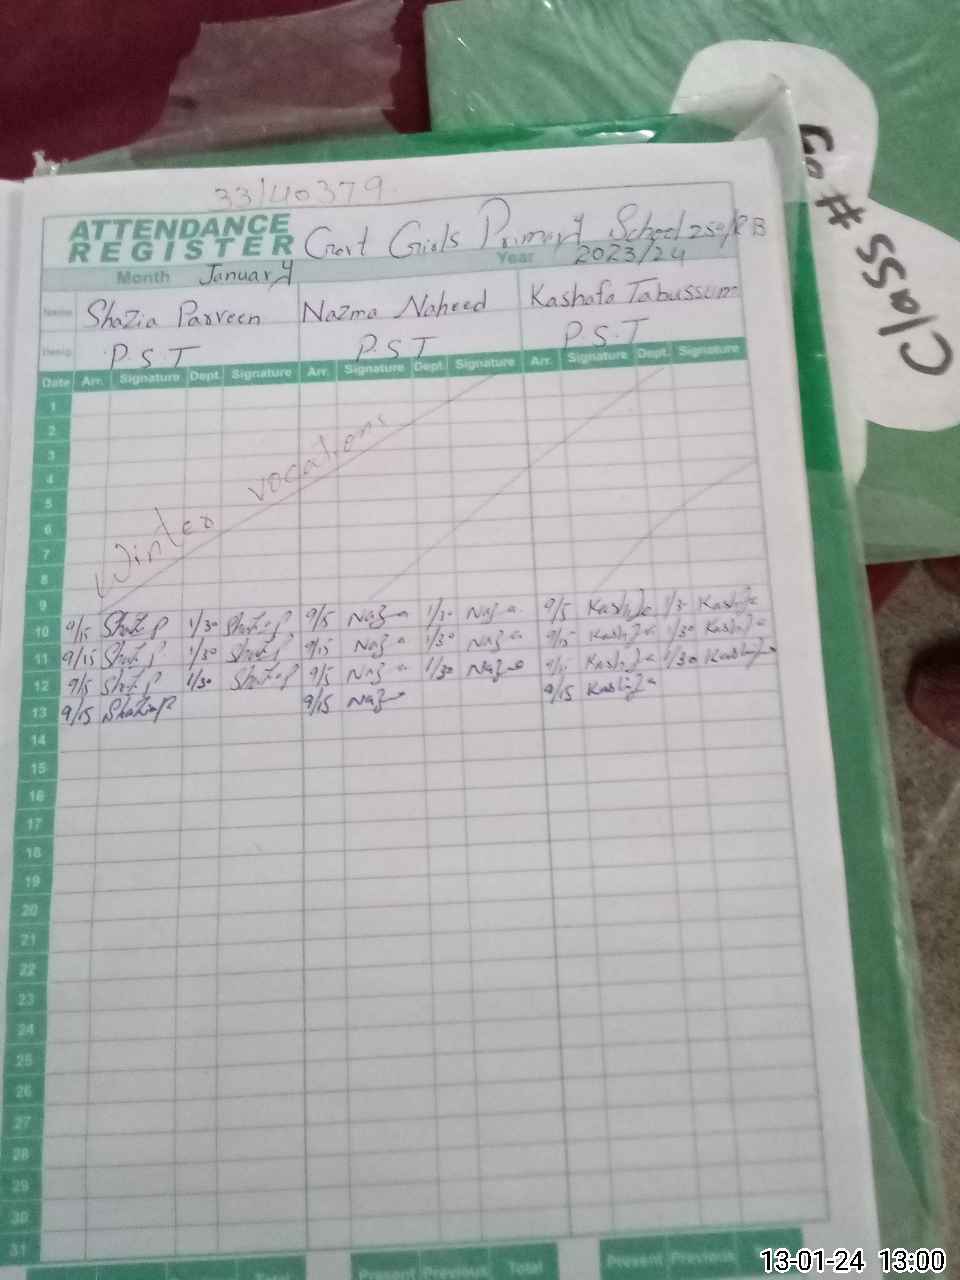 33140379
ATTENDANCE
REGISTER Govt Girls Primary School 259/RB
Month January Year 2023/24
Name Shazia Parveen Nazma Naheed Kashafa Tabussum
Desig. P.S.T P.S.T P.S.T
Date Arr. Signature Dept. Signature Arr. Signature Dept. Signature Arr. Signature Dept. Signature
1
2
3
4
5
6
7
8
Winter vocations
9
10 9/15 1/30 9/5 1/30 9/5 1/30
11 9/15 1/30 9/15 1/30 9/15 1/30
12 9/5 1/30 9/5 1/30 1/30
13 9/15 9/15 9/15
14
15
16
17
18
19
20
21
22
23
24
25
26
27
28
29
30
31
Total Present Previous Total Present Previous
Class # 09
13-01-24 13:00